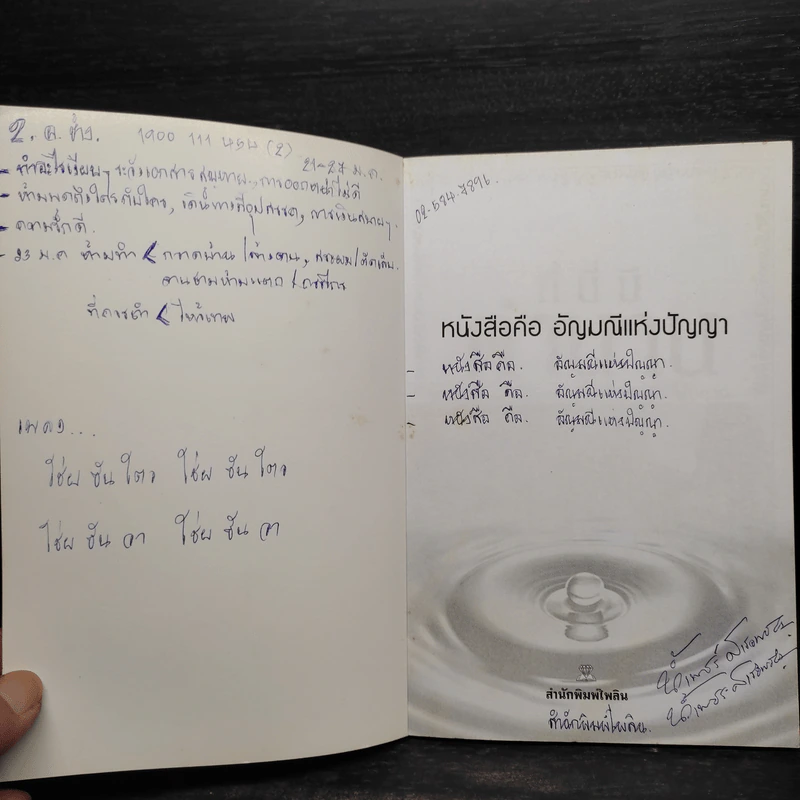 2. ค. ช้าง. 1900 111 หมน (2)
21-27 ม.ค.
- ทำอะไรเงียบๆ ระวังเอกสาร สัญญา, การออกหน้าไม่ดี
- ห้ามพูดถึงใครกับใคร, เดินทางมีอุปสรรค, การเงินสบายๆ
- ความรักดี.
- 23 ม.ค ห้ามทำ < กวาดบ้าน / ล้างจาน, สระผม / ตัดเล็บ.
จานชามห้ามแตก /
ที่ควรทำ < ไหว้เทพ
เพลง...
ใช่ผ ชัน โตว ใช่ผ ชัน โตว
ใช่ผ ชัน วา ใช่ผ ชัน วา
02-594-7896.
หนังสือคือ อัญมณีแห่งปัญญา
- หนังสือคือ. อัญมณีแห่งปัญญา.
- หนังสือ คือ. อัญมณีแห่งปัญญา.
- หนังสือ คือ. อัญมณีแห่งปัญญา.
สำนักพิมพ์ไพลิน
สำนักพิมพ์ไพลิน.